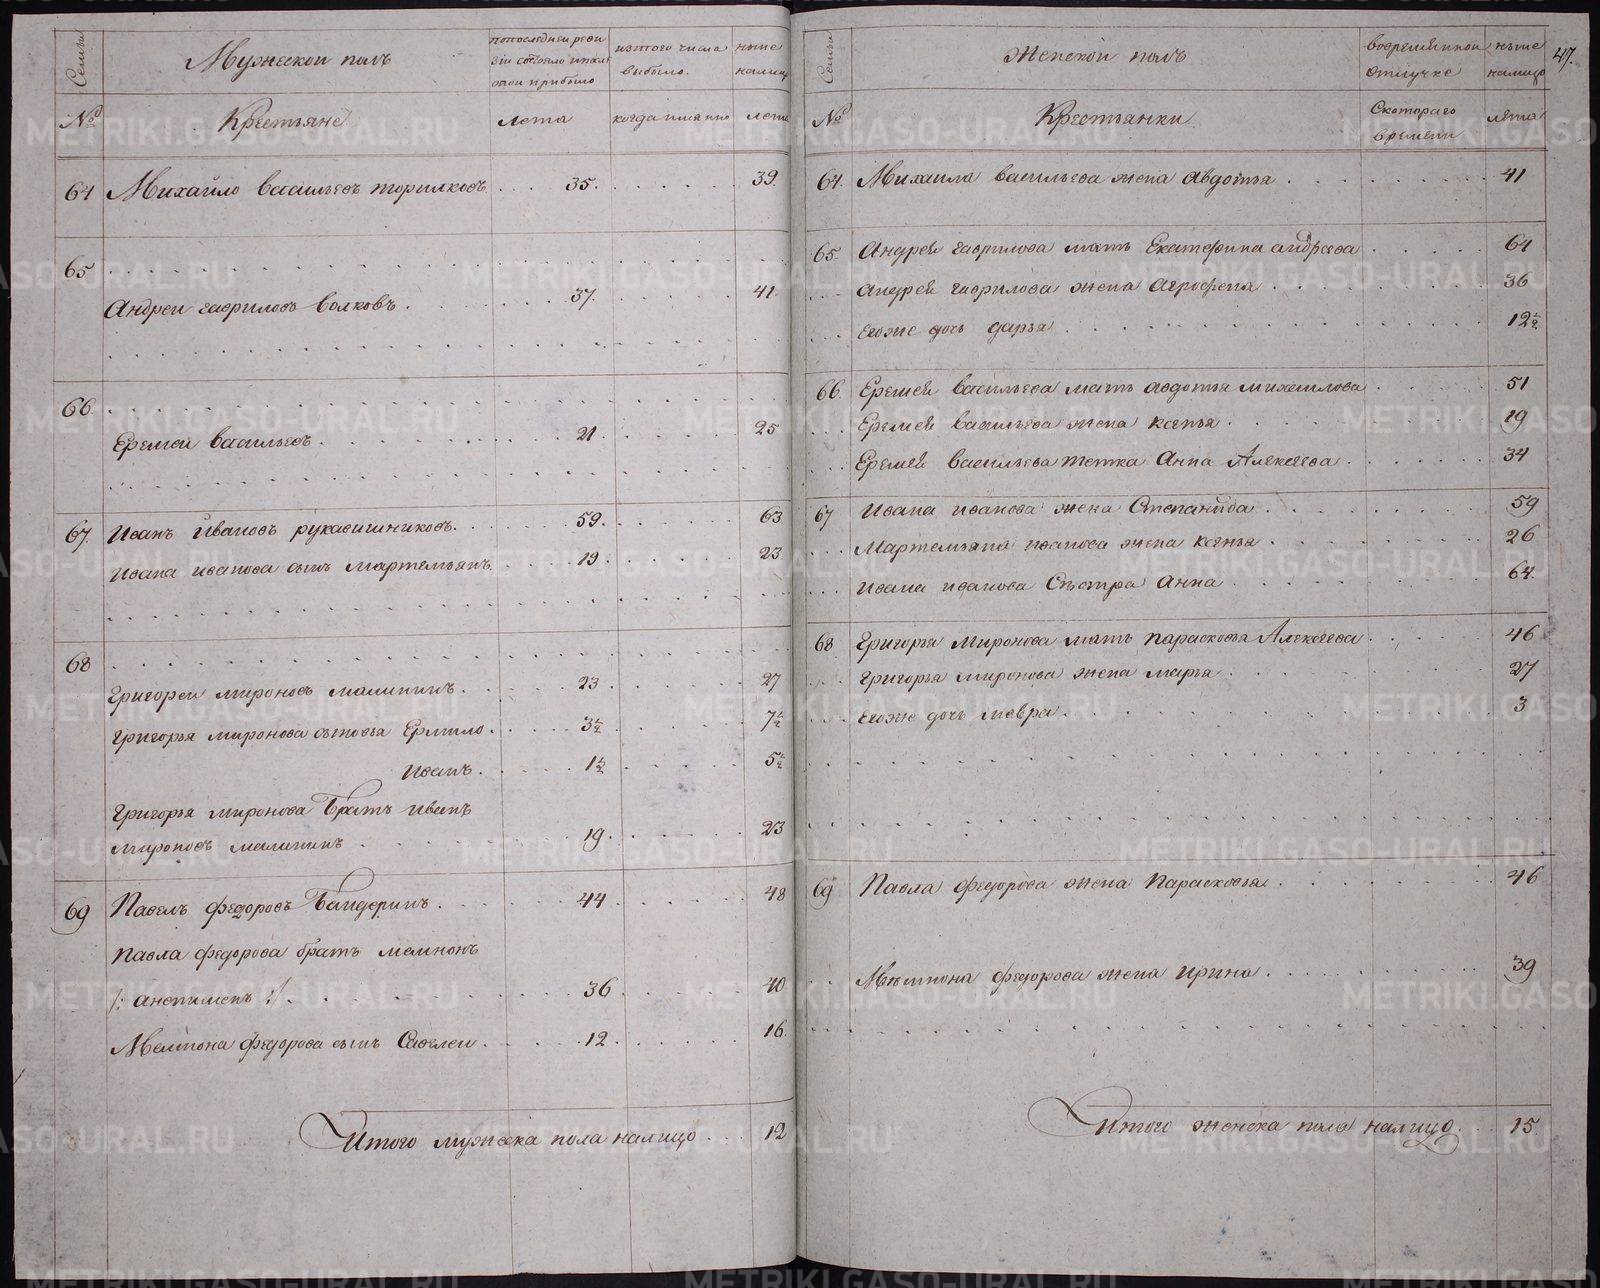 Семьи
Мужескои полъ
попоследнеи реви
зіи состояло ипосл
онои прибыло
изтого числа
выбыло.
ныне
налицо
№
Крестьяне
лета
когда имянно
лета
64 Михайло васильевъ 35. 39.
65
Андреи гавриловъ волковъ. 37. 41
66
Еремеи васильевъ. 21 25
67. Иванъ ивановъ рукавишниковъ. 59. 63
Ивана иванова сынъ мартемьянъ. 19. 23
68
Григореи мироновъ малининъ. 23 27
Григорья миронова сыновья Ермило. 3½ 7½
Иванъ. 1½ 5½
Григорья миронова Братъ иванъ
мироновъ малининъ 19. 23
69 Павелъ федоровъ 44 48
Павла федорова братъ мемнонъ
36 40
Мемнона федорова сынъ Савелеи. 12. 16
Итого мужеска пола налицо 12
47.
Семьи
Женскои полъ
вовременнои
отлучке
ныне
налицо
№
Крестьянки
Скотораго
времени
лета
64. Михаила васильева жена авдотья 41
65. Андрея гаврилова мать Екатерина андреева 64
Андрея гаврилова жена агрофена 36
Егоже дочь дарья 12½
66. Еремея васильева мать авдотья михаилова 51
Еремея васильева жена ксенья. 19
Еремея васильева тетка Анна Алексеева 34
67 Ивана иванова жена Степанида. 59
Мартемьяна иванова жена ксенья. 26
Ивана иванова Сестра анна 64.
68 Григорья миронова мать парасковья Алексеева 46
Григорья миронова жена марья 27
Егоже дочь мавра. 3
69 Павла федорова жена Парасковья. 46
Мемнона федорова жена ирина. 39
Итого женска пола налицо. 15.
METRIKI.GASO-URAL.RU